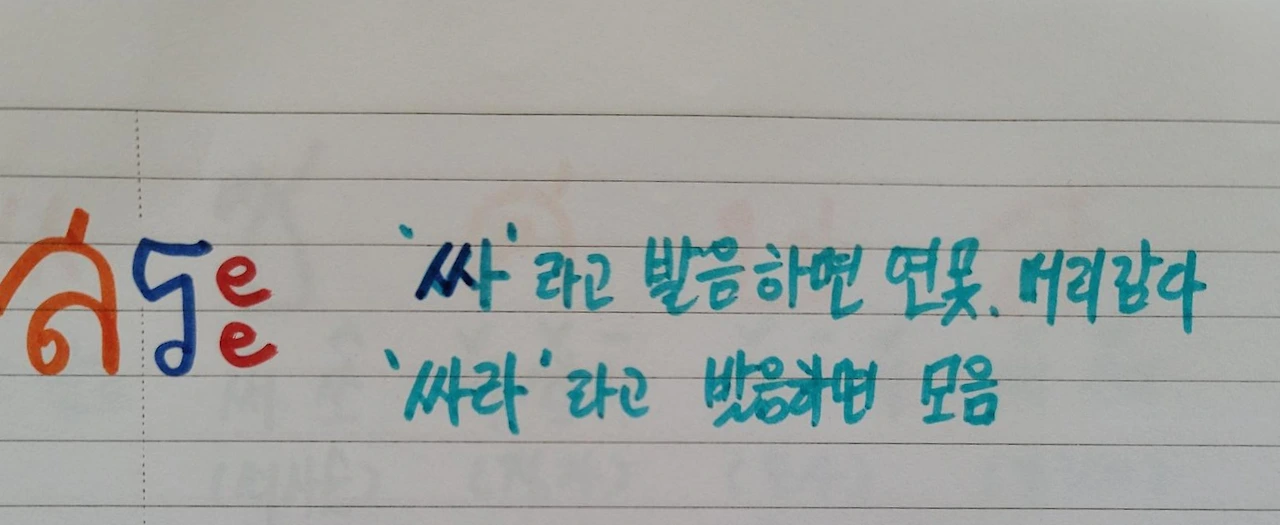 สระ '싸'라고 발음하면 연못. 머리감다
'싸라'라고 발음하면 모음